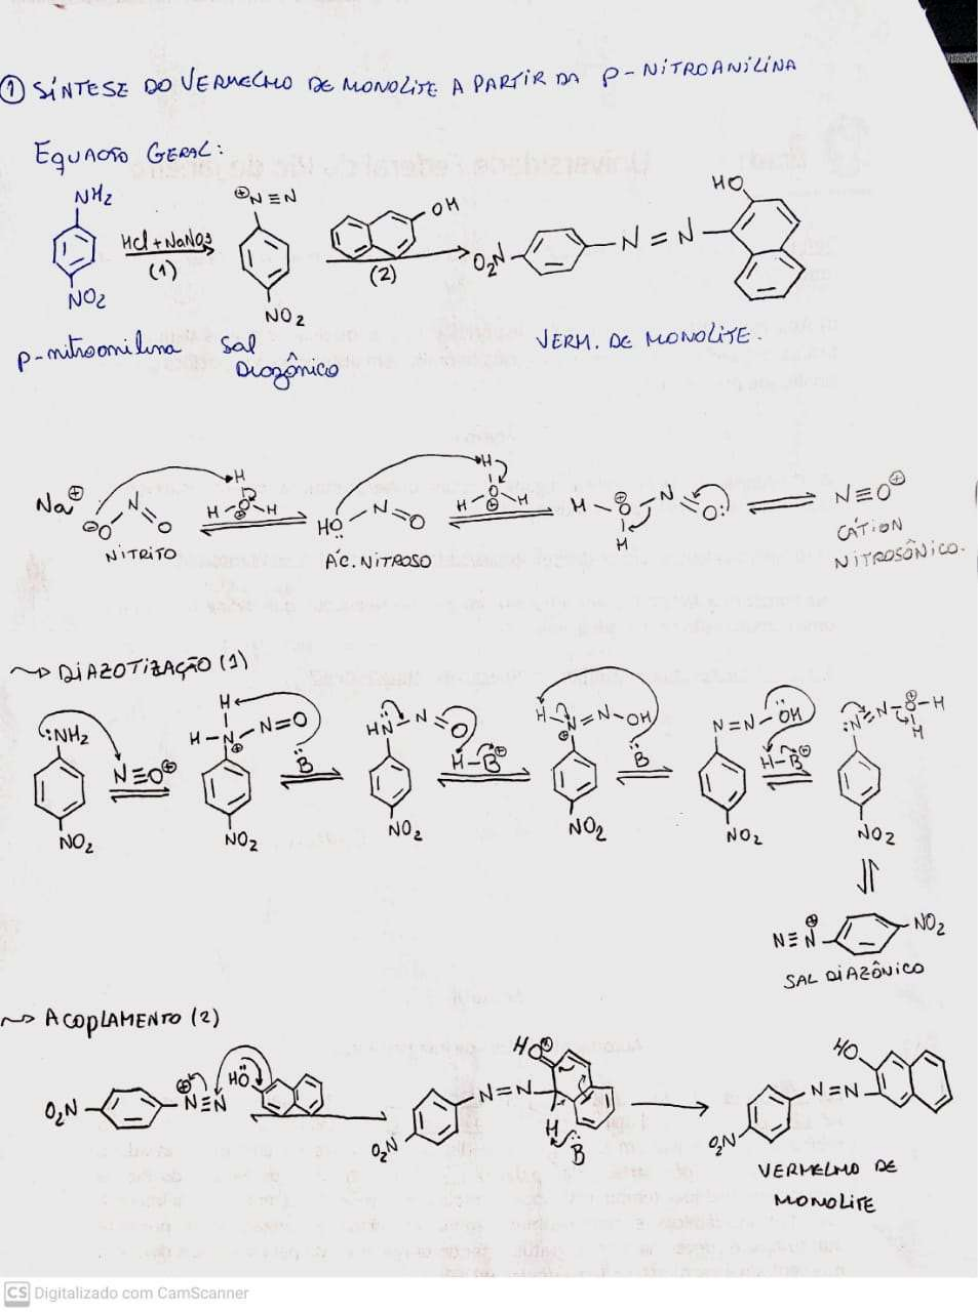 ① SÍNTESE DO VERMELHO DE MONOLITE A PARTIR DA P-NITROANILINA
EQUAÇÃO GERAL:
NH2
NO2
HCl + NaNO3
(1)
⊕N≡N
NO2
OH
(2)
O2N
N=N
HO
p-nitroanilina
Sal Diazônico
VERM. DE MONOLITE.
Na⊕
⊖O
N
O
NITRITO
H
O
H
H
HO
N
O
ÁC. NITROSO
H
O
H
H
H
O
H
N
O:
N≡O⊕
CÁTION
NITROSÔNICO.
~> DIAZOTIZAÇÃO (1)
:NH2
NO2
N≡O⊕
H
H-N
N=O
NO2
B
HN
N
O
NO2
H-B⊕
H
N=N-OH
NO2
B
N=N-OH
NO2
H-B⊕
:N=N
O-H
H
NO2
N≡N⊕
NO2
SAL DIAZÔNICO
~> ACOPLAMENTO (2)
O2N
N≡N
HO
HO⊕
N=N
O2N
H
B
HO
N=N
O2N
VERMELHO DE
MONOLITE
CS Digitalizado com CamScanner